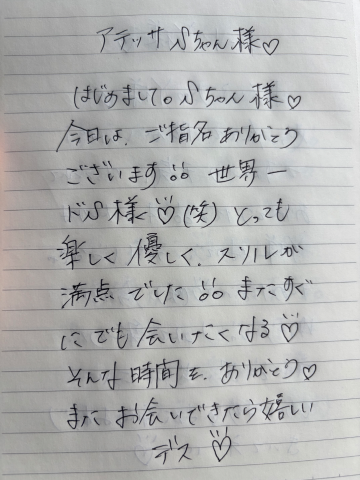 アテッサ Sちゃん様♡
はじめまして。Sちゃん様♡
今日は、ご指名ありがとう
ございます!! 世界一
ドS様♡(笑) とっても
楽しく優しく、スリルが
満点でした!! またすぐ
にでも会いたくなる♡
そんな時間を、ありがとう♡
またお会いできたら嬉しい
デス♡